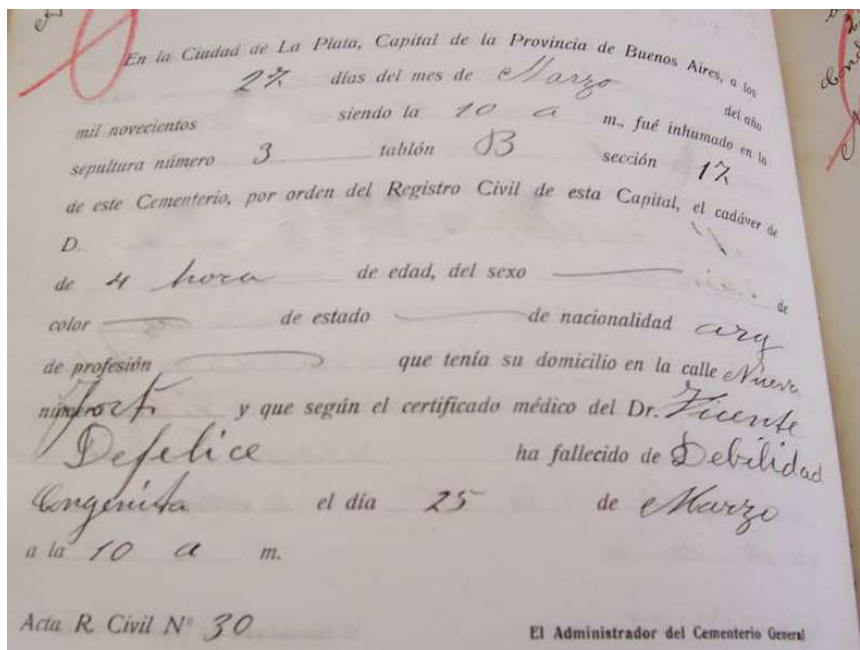 En la Ciudad de La Plata, Capital de la Provincia de Buenos Aires, a los
27 días del mes de Marzo del año
mil novecientos siendo la 10 a m., fué inhumado en la
sepultura número 3 tablón 83 sección 17
de este Cementerio, por orden del Registro Civil de esta Capital, el cadáver de
D.
de 4 hora de edad, del sexo de
color de estado de nacionalidad arg
de profesión que tenía su domicilio en la calle Nueva
número y que según el certificado médico del Dr. Vicente
Defelice ha fallecido de Debilidad
Congenita el día 25 de Marzo
a la 10 a m.
Acta R. Civil Nº 30
El Administrador del Cementerio General